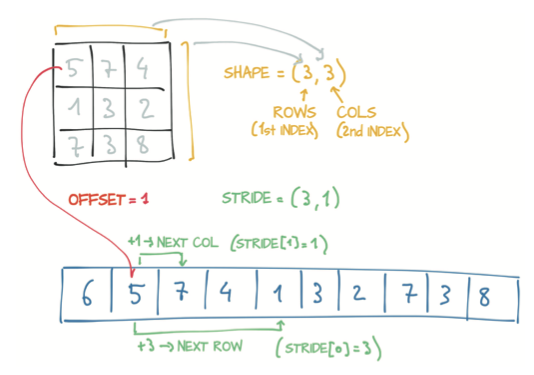 5 7 4
1 3 2
7 3 8
SHAPE = (3, 3)
ROWS COLS
(1st INDEX) (2nd INDEX)
OFFSET = 1
STRIDE = (3, 1)
+1 → NEXT COL (STRIDE[1] = 1)
6 5 7 4 1 3 2 7 3 8
+3 → NEXT ROW (STRIDE[0] = 3)